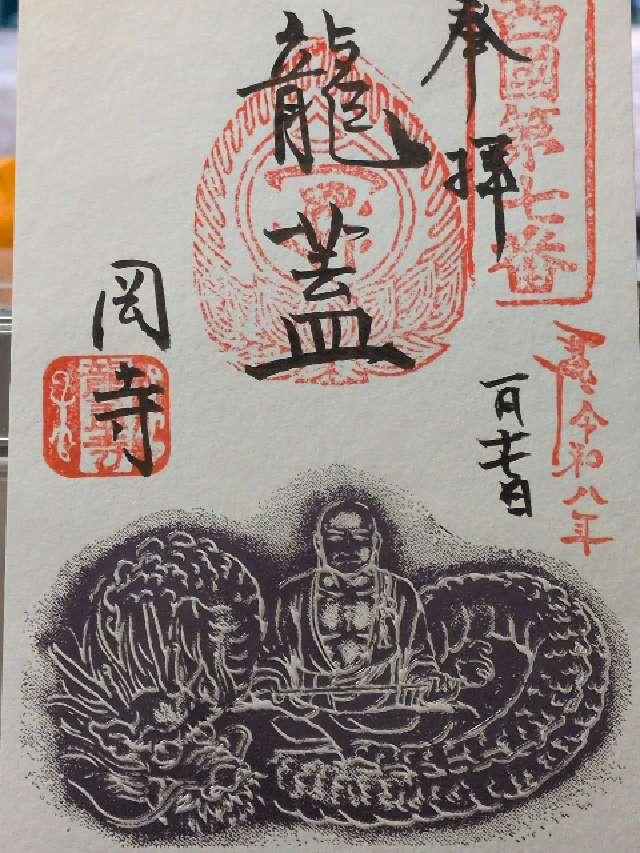 西國第七番
奉拝
令和八年
一月十七日
龍蓋
岡寺